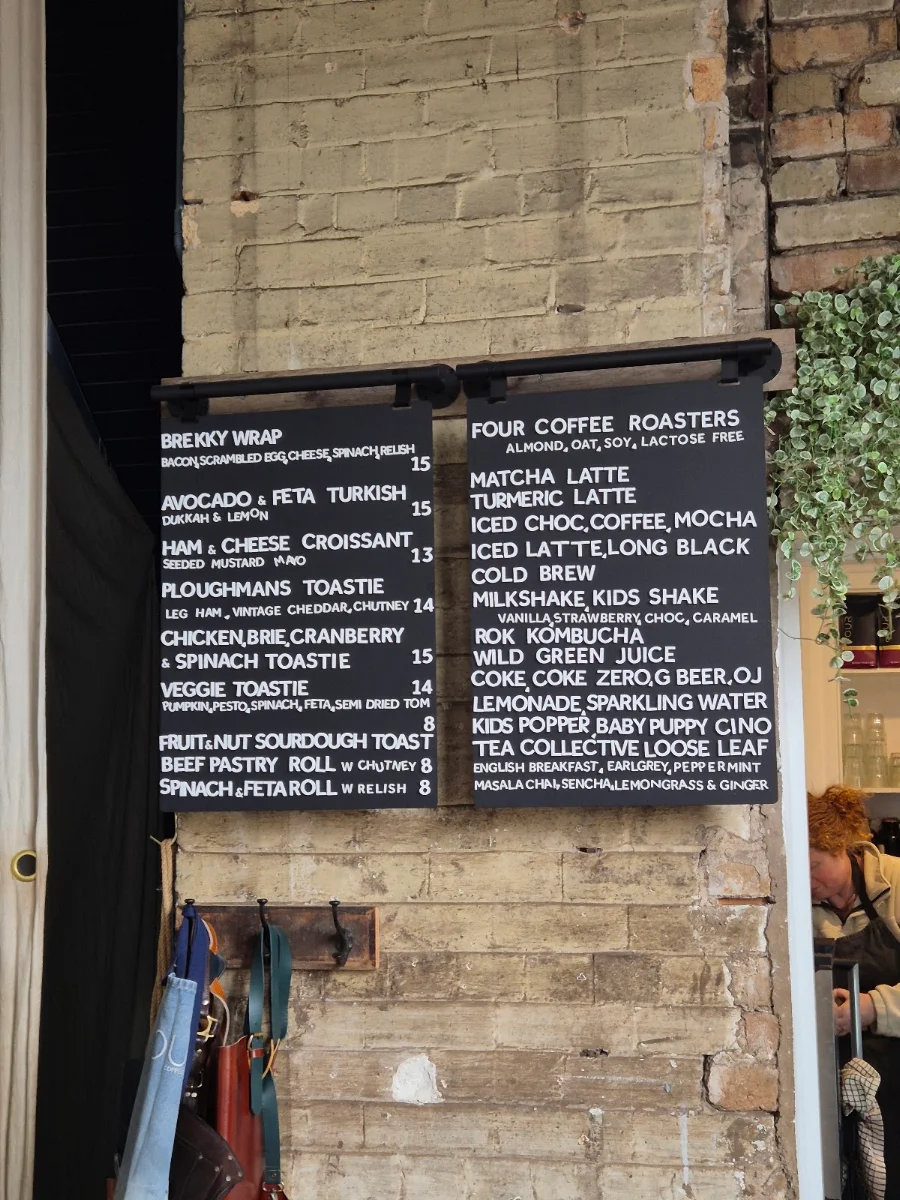 BREKKY WRAP
BACON, SCRAMBLED EGG, CHEESE, SPINACH, RELISH
15
AVOCADO & FETA TURKISH
DUKKAH & LEMON
15
HAM & CHEESE CROISSANT
SEEDED MUSTARD MAYO
13
PLOUGHMANS TOASTIE
LEG HAM, VINTAGE CHEDDAR, CHUTNEY 14
CHICKEN, BRIE, CRANBERRY
& SPINACH TOASTIE 15
VEGGIE TOASTIE 14
PUMPKIN, PESTO, SPINACH, FETA, SEMI DRIED TOM
8
FRUIT & NUT SOURDOUGH TOAST
BEEF PASTRY ROLL W CHUTNEY 8
SPINACH & FETA ROLL W RELISH 8
FOUR COFFEE ROASTERS
ALMOND, OAT, SOY, LACTOSE FREE
MATCHA LATTE
TURMERIC LATTE
ICED CHOC, COFFEE, MOCHA
ICED LATTE, LONG BLACK
COLD BREW
MILKSHAKE, KIDS SHAKE
VANILLA, STRAWBERRY, CHOC, CARAMEL
ROK KOMBUCHA
WILD GREEN JUICE
COKE, COKE ZERO, G BEER, OJ
LEMONADE, SPARKLING WATER
KIDS POPPER, BABY PUPPY CINO
TEA COLLECTIVE LOOSE LEAF
ENGLISH BREAKFAST, EARLGREY, PEPPERMINT
MASALA CHAI, SENCHA, LEMONGRASS & GINGER
OU